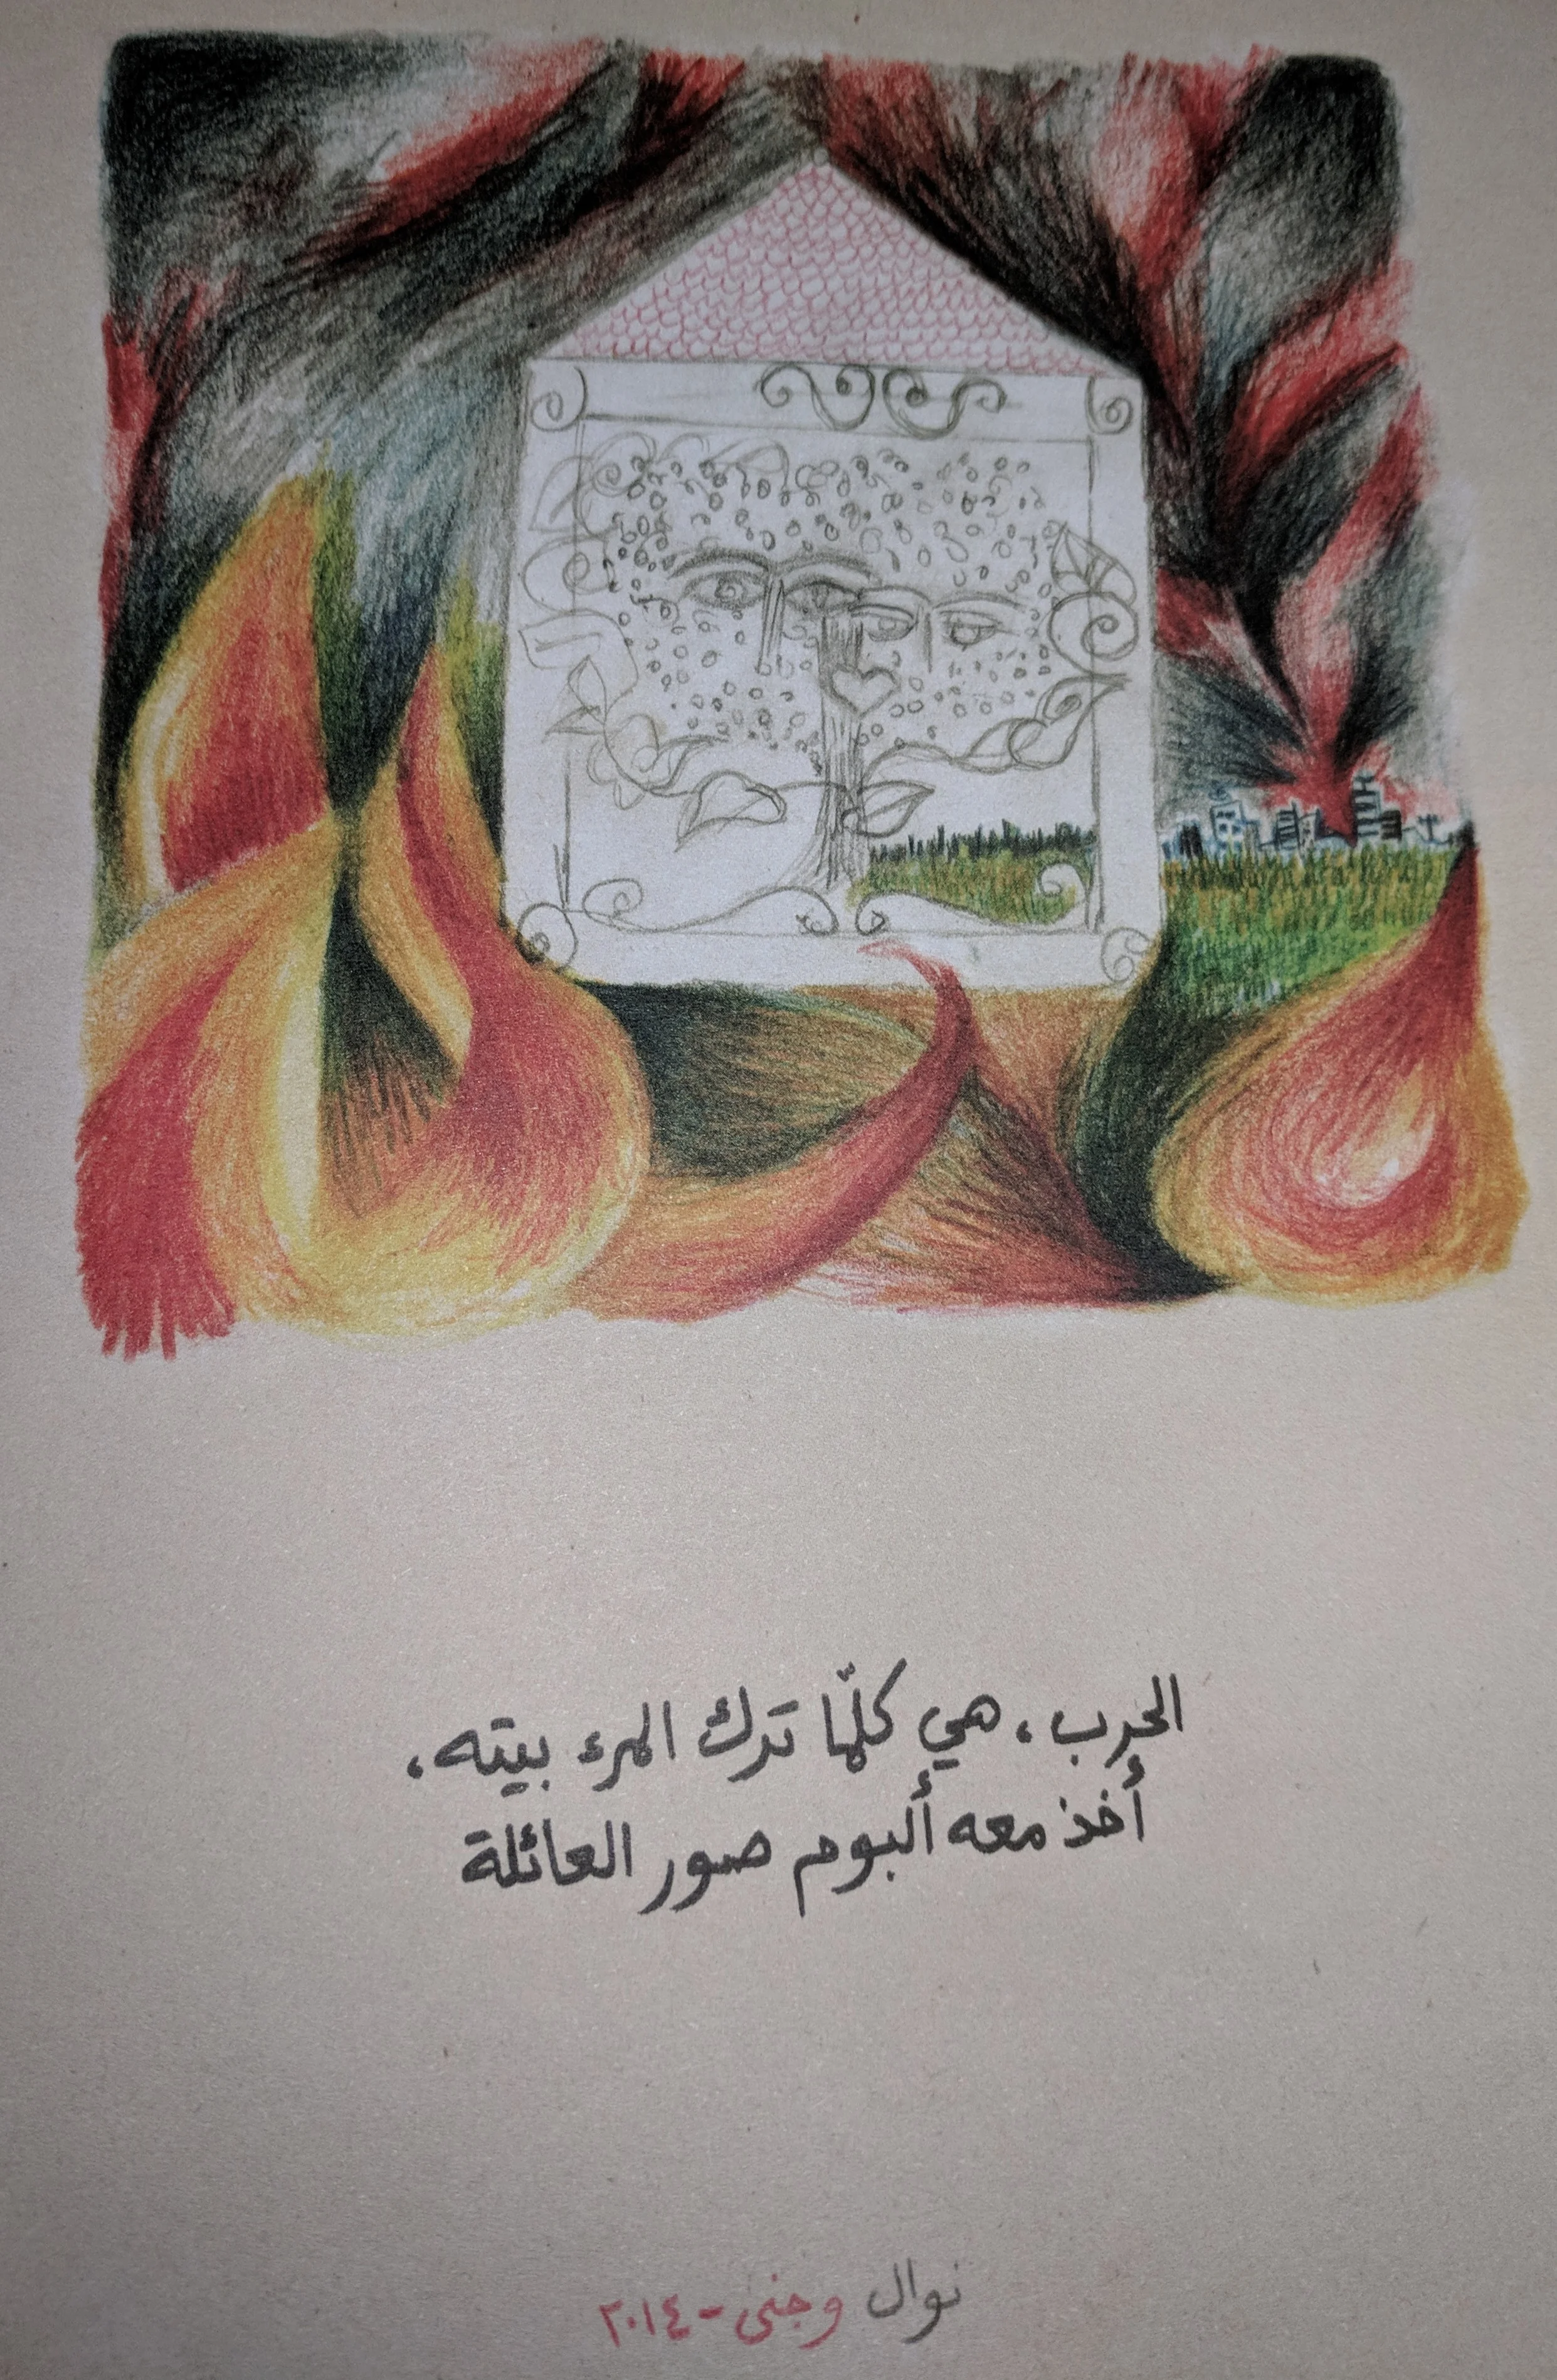 الحرب، هي كلّما ترك المرء بيته،
أخذ معه ألبوم صور العائلة
نوال وجنى - ٢٠١٤